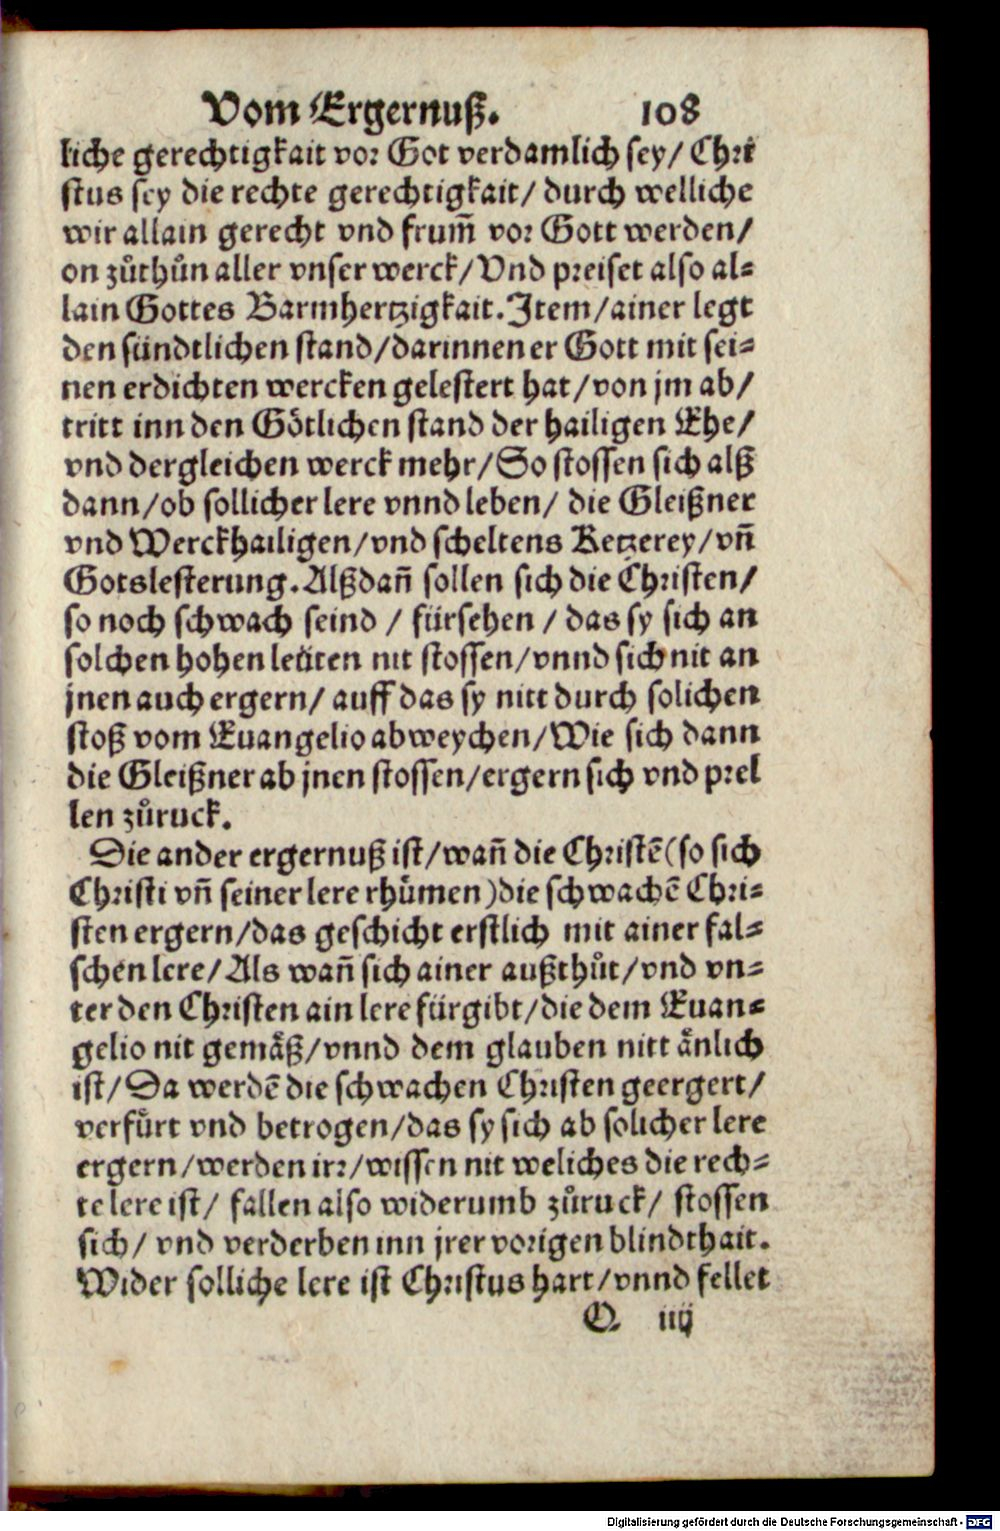 Vom Ergernuß. 108
liche gerechtigkait vor Got verdamlich sey/ Chri
stus sey die rechte gerechtigkait/ durch welliche
wir allain gerecht vnd frum̃ vor Gott werden/
on zůthůn aller vnser werck/ Vnd preiset also al-
lain Gottes Barmhertzigkait. Item/ ainer legt
den sündtlichen stand/ darinnen er Gott mit sei-
nen erdichten wercken gelestert hat/ von jm ab/
tritt inn den Götlichen stand der hailigen Ehe/
vnd dergleichen werck mehr/ So stossen sich alß
dann/ ob sollicher lere vnnd leben/ die Gleißner
vnd Werckhailigen/ vnd scheltens Ketzerey/ vñ
Gotslesterung. Alßdañ sollen sich die Christen/
so noch schwach seind / fürsehen / das sy sich an
solchen hohen leüten nit stossen/ vnnd sich nit an
jnen auch ergern/ auff das sy nitt durch solichen
stoß vom Euangelio abweychen/ Wie sich dann
die Gleißner ab jnen stossen/ ergern sich vnd prel
len zůruck.
Die ander ergernuß ist/ wañ die Christẽ (so sich
Christi vñ seiner lere rhůmen) die schwachẽ Chri-
sten ergern/ das geschicht erstlich mit ainer fal-
schen lere/ Als wañ sich ainer außthůt/ vnd vn-
ter den Christen ain lere fürgibt/ die dem Euan-
gelio nit gemäß/ vnnd dem glauben nitt änlich
ist/ Da werdẽ die schwachen Christen geergert/
verfürt vnd betrogen/ das sy sich ab solicher lere
ergern/ werden irr/ wissen nit weliches die rech-
te lere ist/ fallen also widerumb zůruck/ stossen
sich/ vnd verderben inn jrer vorigen blindthait.
Wider solliche lere ist Christus hart/ vnnd fellet
O iiij
Digitalisierung gefördert durch die Deutsche Forschungsgemeinschaft - DFG